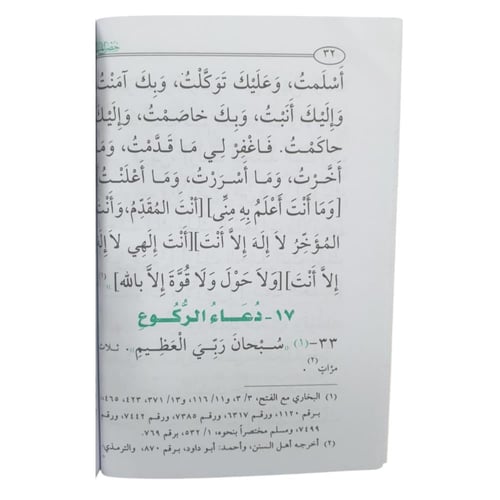 ٣٢
أَسْلَمتُ، وَعَلَيْكَ تَوَكَّلْتُ، وَبِكَ آمَنْتُ
وَإِلَيْكَ أَنَبْتُ، وَبِكَ خاصَمْتُ، وَإِلَيْكَ
حاكَمْتُ. فَاغْفِرْ لِي مَا قَدَّمْتُ، وَمَا
أَخَّرْتُ، وَمَا أَسْرَرْتُ، وَمَا أَعْلَنْتُ
[وَمَا أَنْتَ أَعْلَمُ بِهِ مِنِّي] [أَنْتَ المُقَدِّمُ، وَأَنْتَ
المُؤَخِّرُ لاَ إِلَهَ إِلاَّ أَنْتَ] [أَنْتَ إِلَهِي لاَ إِلَهَ
إِلاَّ أَنْتَ] [وَلاَ حَوْلَ وَلاَ قُوَّةَ إِلاَّ بِالله]» (١)
١٧- دُعَاءُ الرُّكُوعِ
٣٣- (١) «سُبْحانَ رَبِّيَ الْعَظِيمِ». ثلاث
مرّاتٍ (٢).
(١) البخاري مع الفتح، ٣/ ٣، و١١/ ١١٦، و١٣/ ٣٧١، ٤٢٣، ٤٦٥،
برقم ١١٢٠، ورقم ٦٣١٧، ورقم ٧٣٨٥، ورقم ٧٤٤٢، ورقم
٧٤٩٩، ومسلم مختصراً بنحوه، ١/ ٥٣٢، برقم ٧٦٩.
(٢) أخرجه أهل السنن، وأحمد: أبو داود، برقم ٨٧٠، والترمذي،